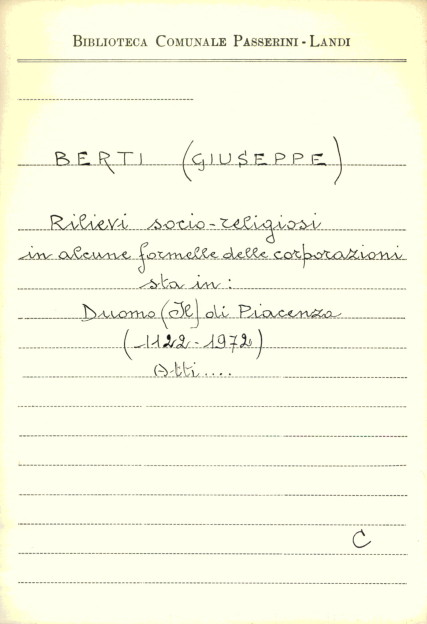 BIBLIOTECA COMUNALE PASSERINI - LANDI
BERTI (GIUSEPPE)
Rilievi socio-religiosi
in alcune formelle delle corporazioni
sta in:
Duomo (Il) di Piacenza
(1122-1972)
Atti....
C